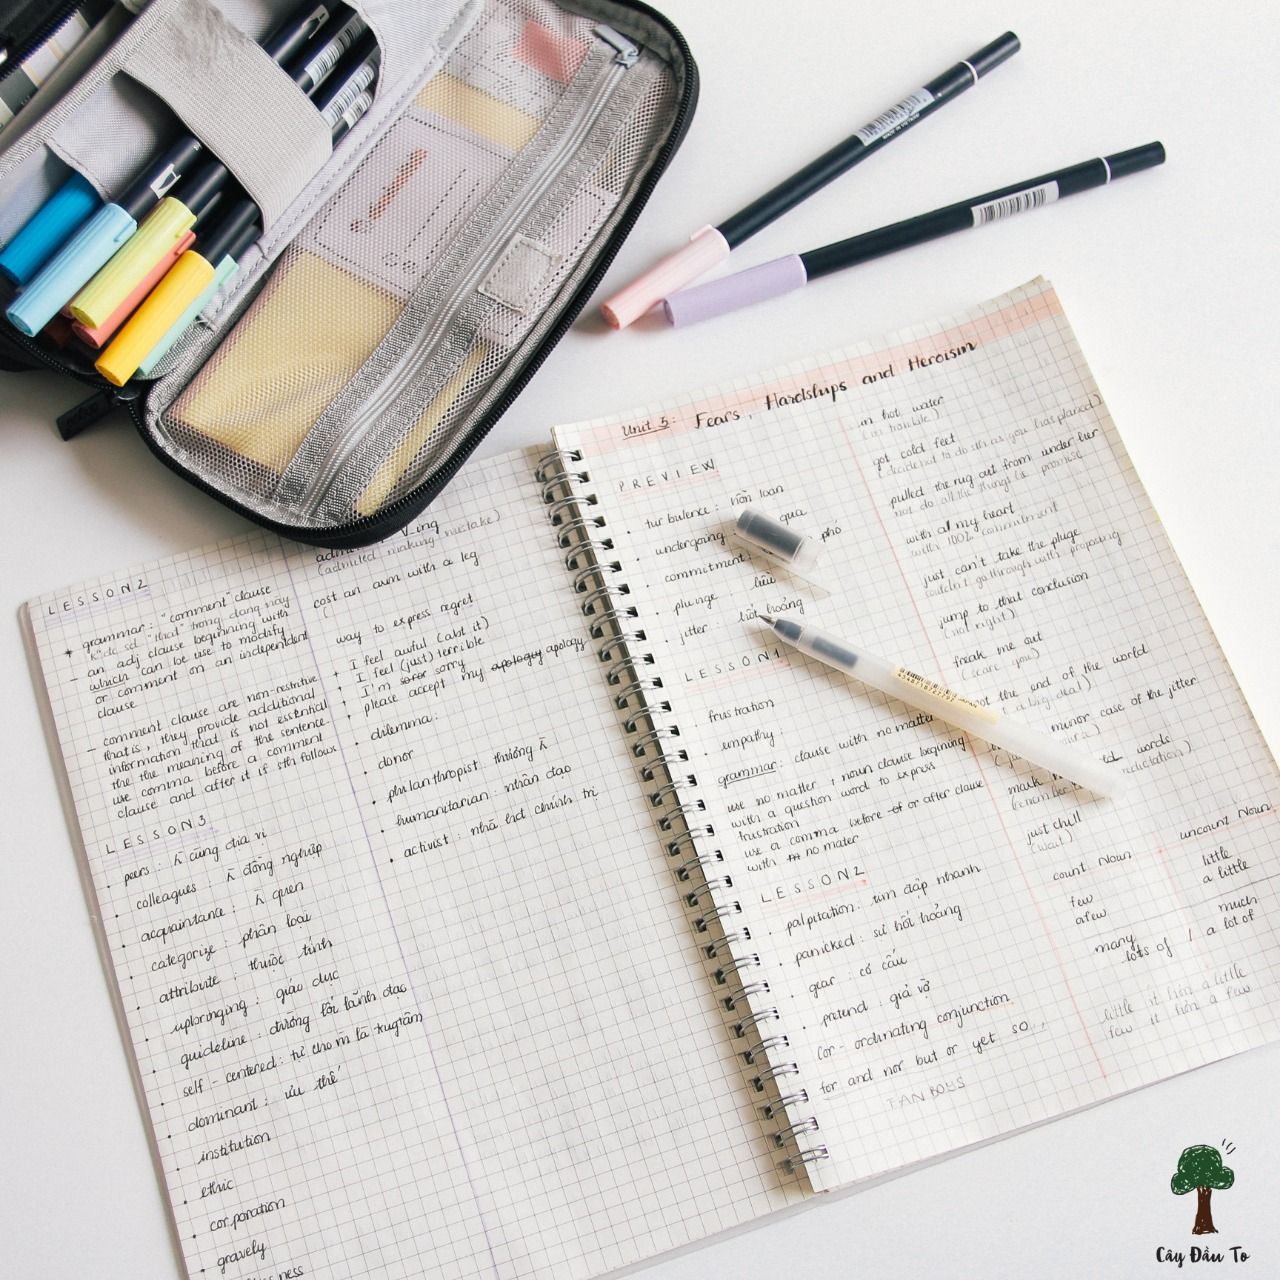 LESSON 2
* grammar: "comment" clause
"that" trong dạng này
- an adj clause beginning with
which can be use to modify
or comment on an independent
clause
- comment clause are non-restritive
that is, they provide additional
information that is not essential
the the meaning of the sentence.
use comma before a comment
clause and after it if sth follows
LESSON 3
peers: cùng địa vị
colleagues: đồng nghiệp
acquaintance: quen
categorize: phân loại
attribute: thuộc tính
upbringing: giáo dục
guideline: đường lối lãnh đạo
self-centered: tự cho m là trung tâm
dominant: ưu thế
institution
ethic
corporation
gravely
V-ing
(admitted making mistake)
cost an arm with a leg
way to express regret
+ I feel awful (abt it)
+ I feel (just) terrible
+ I'm sorry
+ please accept my apology apology
dilemma:
donor
philanthropist: thương
humanitarian: nhân đạo
activist: nhà hđ chính trị
Unit 5: Fears, Hardships and Heroism
PREVIEW
turbulence: hỗn loạn
undergoing qua
commitment: phó
plunge: liều
jitter: hốt hoảng
LESSON 1
frustration
empathy
grammar: clause with no matter
use no matter + noun clause beginning
with a question word to express
frustration
use a comma before or after clause
with no mater
LESSON 2
palpitation: tim đập nhanh
panicked: sự hốt hoảng
gear: cơ cấu
pretend: giả vờ
Cor-ordinating conjunction
for and nor but or yet so
FANBOYS
in hot water
(in trouble)
got cold feet
(decide not to do sth as you has planed)
pulled the rug out from under her
not do all the things he promise
with all my heart
with 100% commitment
just can't take the pluge
couldn't go through with proposing
jump to that conclusion
(not right)
freak me out
(scare you)
not the end of the world
a big deal)
minor case of the jitter
mark words
(remember prediction)
just chill
(wait)
count Noun
uncount Noun
few
a few
little
a little
many
lots of / a lot of
much
little ít hơn a little
few ít hơn a few
MADE IN VIETNAM
Cây Đầu To